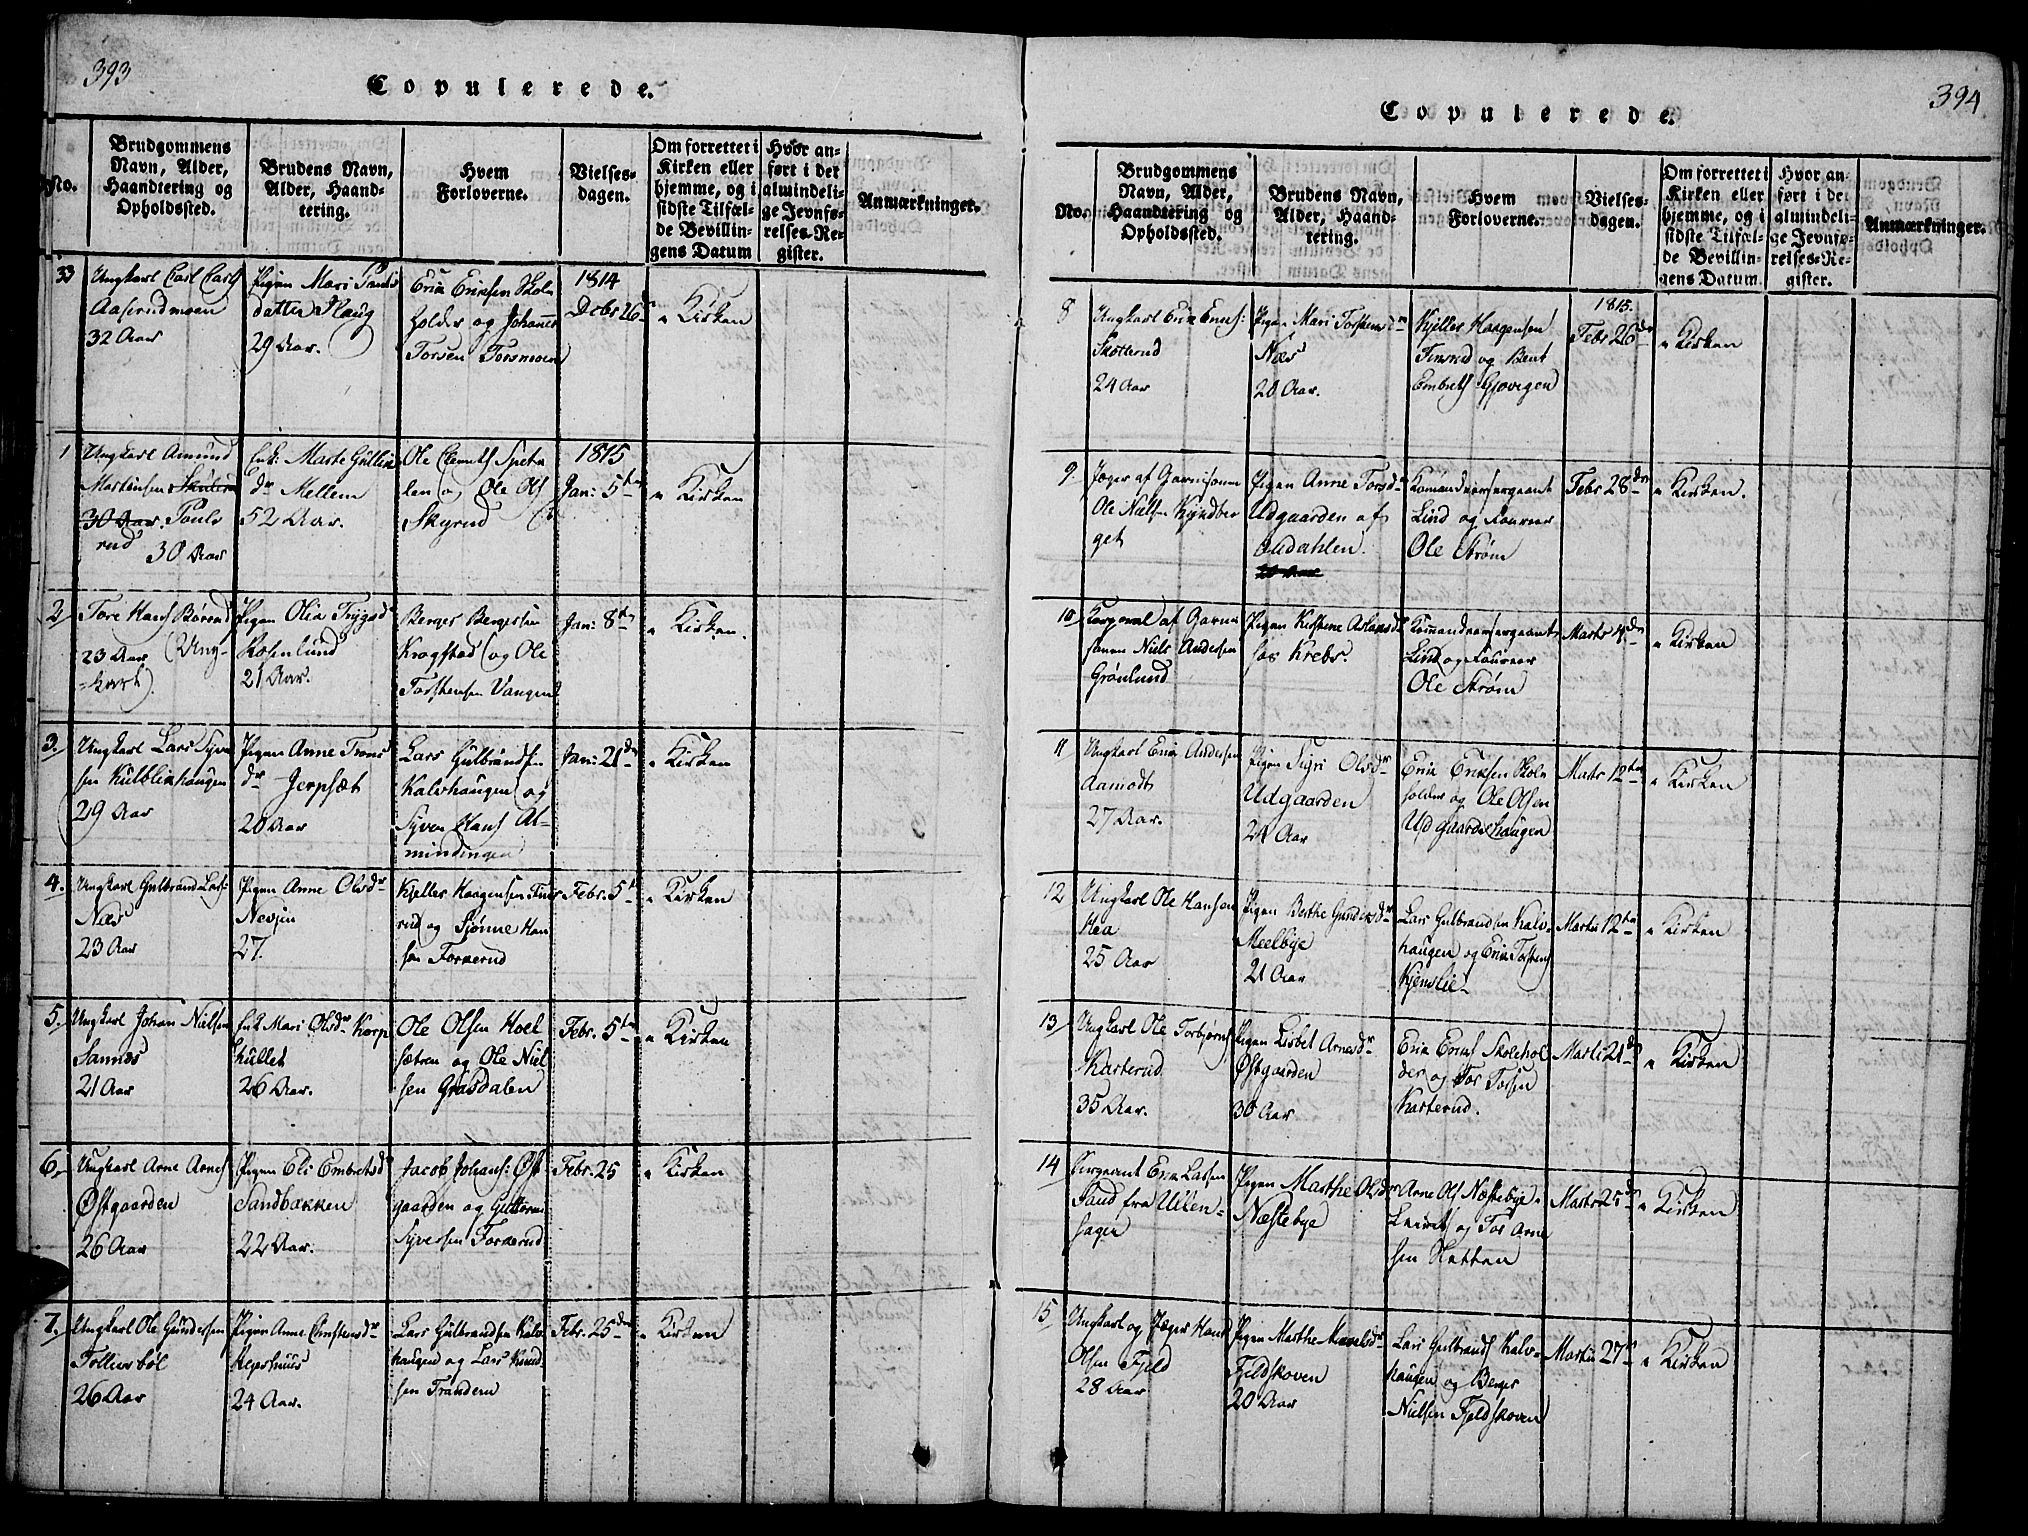 393
Copulerede.
No.
Brudgommens
Navn, Alder,
Haandtering og
Opholdssted.
Brudens Navn,
Alder, Haand-
tering.
Hvem
Forloverne.
Vielses-
dagen.
Om forrettet i
Kirken eller
hjemme, og i
sidste Tilfæl-
de Bevillin-
gens Datum
Hvor an-
ført i det
almindeli-
ge Jevnfø-
relses-Re-
gister.
Anmærkninger.
33
Ungkarl Carl Carls
Aaserudmoen
32 Aar
Pigen Mari Pouls
datter Haug
29 Aar.
Erik Eriksen Skole
holder og Johannes
Torsen Torsmoen
1814
Decbr 26
Kirken
1
Ungkarl Amund
Mortensen
30 Aar. Pouls
rud 30 Aar
Enk: Marte Gullik
dr Mellem
52 Aar.
Ole Clemets Speta
len og Ole Ols
Skyrud
1815
Jan: 5te
Kirken
2
Tore Hans Børrud
23 Aar (Ung-
karl).
Pigen Olia Trygsd
Rosenlund
21 Aar.
Berger Bergersen
Krogstad og Ole
Torstensen Vangen
Jan: 8de
Kirken.
3.
Ungkarl Lars Syver
sen Kulblikhaugen
29 Aar
Pigen Anne Trons
dr Jerpset
20 Aar
Lars Gulbrandsen
Kalvhaugen og
Syver Hans Al-
mindingen
Jan: 21de
Kirken
4.
Ungkarl Gulbrand Lars:
Næs
23 Aar
Pigen Anne Olsdr
Nevjen
27.
Kjeller Haagensen Fins
rud og Sjønne Han
sen Fornerud
Febr. 5te
Kirken
5.
Ungkarl Johan Nielsen
Sannæs
21 Aar
Enk Mari Olsdr Korp
hullet
26 Aar.
Ole Olsen Hoel
sætren og Ole Niel
sen Grasdalen
Febr. 5te
Kirken
6.
Ungkarl Arne Arnes
Østgaarden
26 Aar
Pigen Eli Embretsd
Sandbakken
22 Aar.
Jacob Johans: Øst
gaarden og Guttorm
Syversen Fornerud
Febr. 25
Kirken
7.
Ungkarl Ole Gundersen
Tollersbøl
26 Aar
Pigen Anne Christensdr
Hepshuus
24 Aar.
Lars Gulbrandsen Kalv
haugen og Lars Knud
sen Trandem
Febr. 25de
Kirken
394
Copulerede.
No.
Brudgommens
Navn, Alder,
Haandtering og
Opholdssted.
Brudens Navn,
Alder, Haand-
tering.
Hvem
Forloverne.
Vielses-
dagen.
Om forrettet i
Kirken eller
hjemme, og i
sidste Tilfæl-
de Bevillin-
gens Datum.
Hvor an-
ført i de
almindeli-
ge Jevnfø-
relses-Re-
gister.
Anmærkninger.
8
Ungkarl Erik Ericks:
Skotterud
24 Aar
Pigen Mari Torstensdr
Næs
20 Aar.
Kjeller Haagensen
Finsrud og Bent
Embrets Gjovigen
1815.
Febr 26de
Kirken
9
Jæger af Garnisonen
Ole Nielsen Kyndber
get
Pigen Anne Torsdr
Udgaarden af
Audahlen.
Komandeersergeant
Lind og Foureer
Ole Strøm
Febr 28de
Kirken.
10
Korporal af Garni
sonen Niels Andersen
Grønlund
Pigen Kirstene Aslaksdr
fox Krebs.
Komandeersergeant
Lind og Foureer
Ole Strøm
Marts 4de
Kirken
11
Ungkarl Erik Andersen
Aamodt
27 Aar.
Pigen Sigri Olsdr
Udgaarden
21 Aar
Erik Eriksen Skole
holder og Ole Olsen
Udgaardshaugen
Marts 12te
Kirken
12
Ungkarl Ole Hansen
Haa
25 Aar
Pigen Berthe Gundersdr
Meelbye
21 Aar
Lars Gulbrandsen Kalv-
haugen og Erik Torstens
Kjenslie
Marti 12te
Kirken
13
Ungkarl Ole Torbjørns
Karterud
35 Aar.
Pigen Lisbet Arnesdr
Østgaarden
30 Aar
Erik Ericks Skolehol
der og Tor Torsen
Karterud.
Marti 21de
Kirken
14
Sergeant Erik Larsen
Sand fra Ullen-
sager
Pigen Marthe Olsdr
Næstebye
Arne Ols Næstebye
og Tor Arne
sen Hatten
Marts 25de
Kirken
15
Ungkarl og Jæger Hans
Olsen Fjeld
28 Aar
Pigen Marthe
Fjeldskoven
20 Aar
Lars Gulbrands Kalv-
haugen og Berger
Nielsen Fjeldskoven
Martii 27de
Kirken